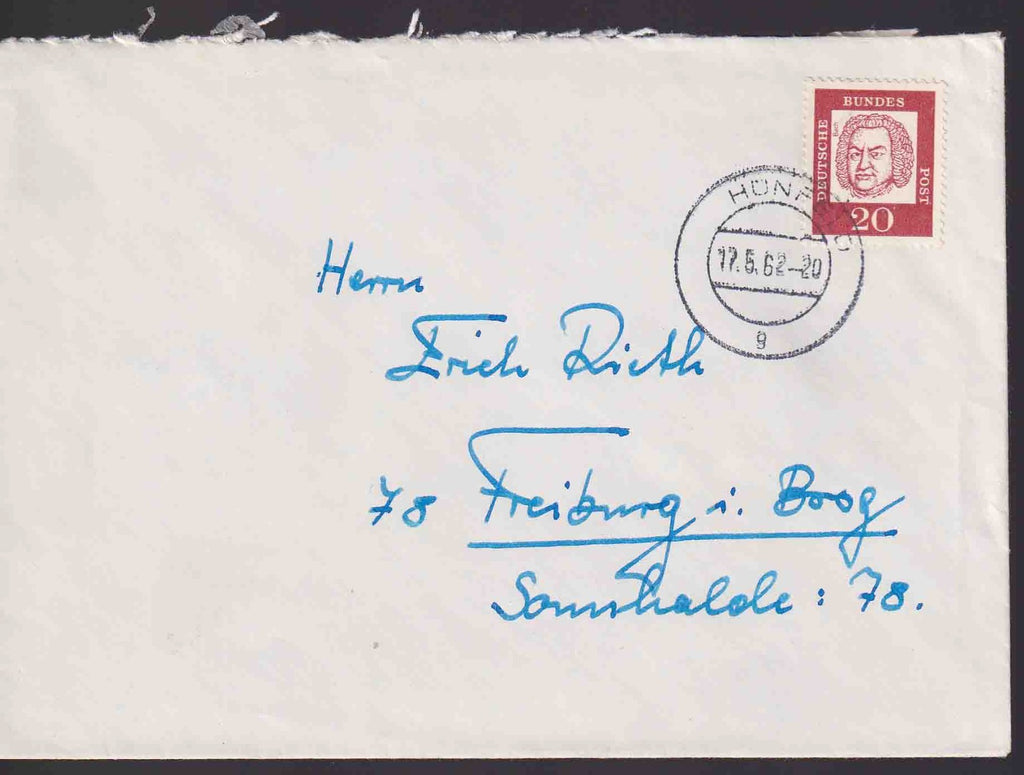 DEUTSCHE BUNDES POST
Bach
20
HÜNFELD
17.5.62-20
g
Herrn
Erich Rieth
78 Freiburg i. Brsg
Sonnhalde: 78.